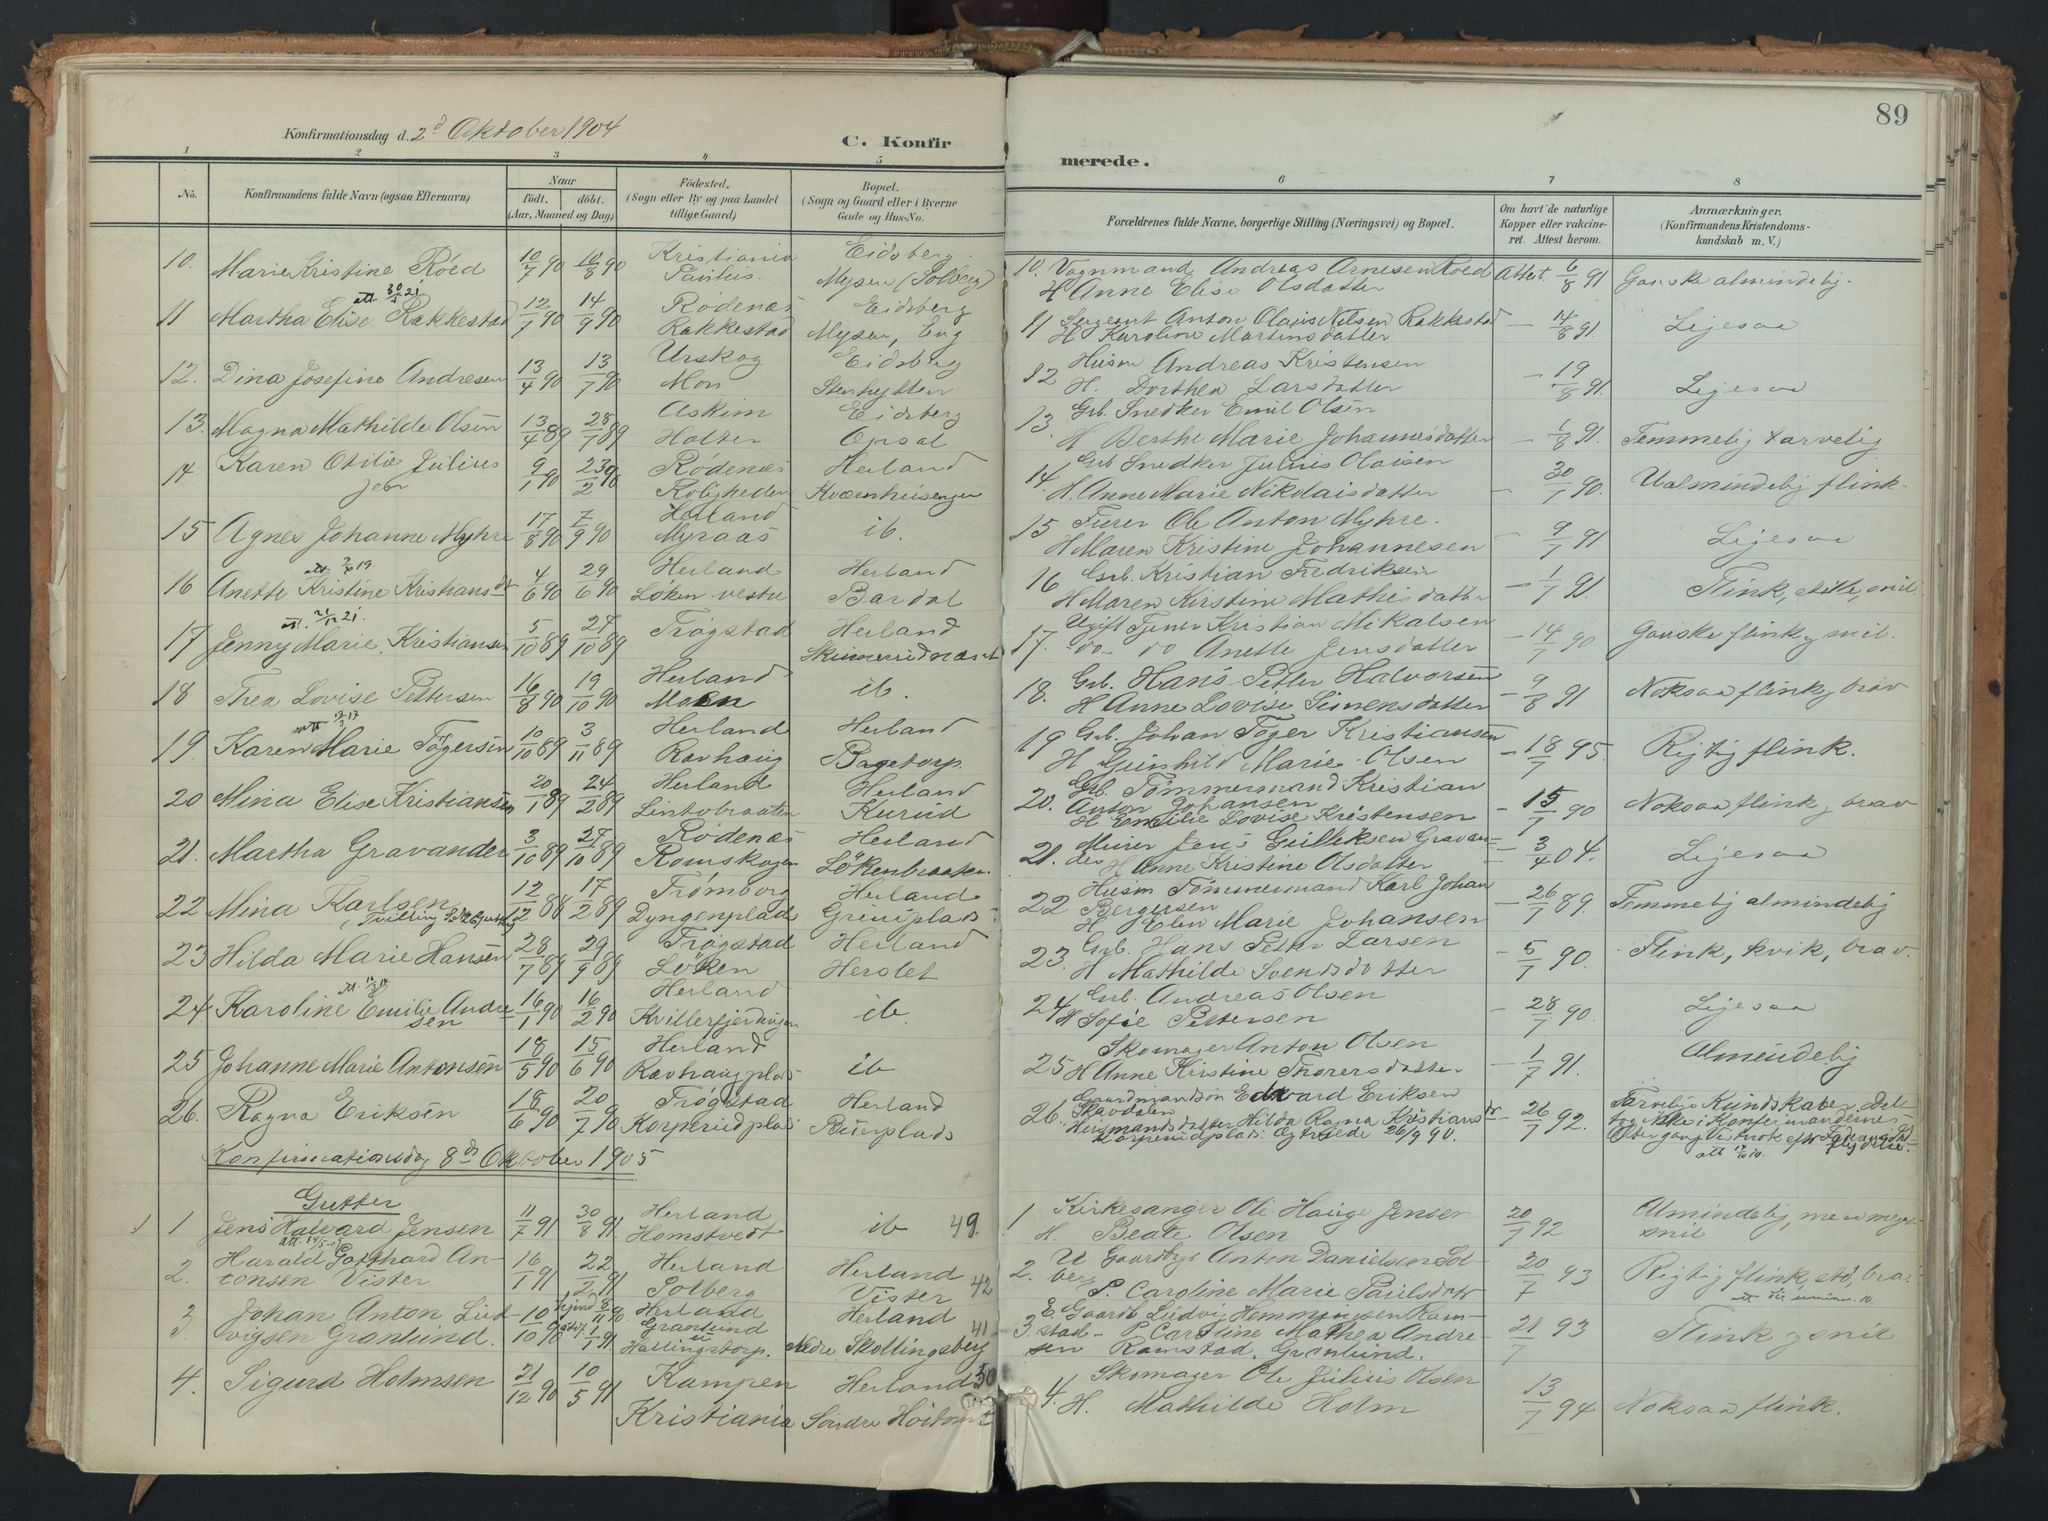 89
Konfirmationsdag d. 2d Oktober 1904.
C. Konfirmerede.
1 2 3 4 5 6 7 8
No. Konfirmandens fulde Navn (ogsaa Efternavn) Naar født. døbt. (Aar, Maaned og Dag) Fødested. (Sogn eller By og paa Landet tillige Gaard) Bopæl. (Sogn og Gaard eller i Byerne Gade og Hus-No. Forældrenes fulde Navne, borgerlige Stilling (Næringsvei) og Bopæl. Om havt de naturlige Kopper eller vakcineret. Attest herom. Anmærkninger. (Konfirmandens Kristendomskundskab m. V.)
10. Marie Kristine Röed 10/7 90 10/8 90 Kristiania Paulus. Eidsberg Mysen (Solberg) 10. Vognmand Andreas Arnesen Roed H Anne Elise Olsdatter Attest 6/8 91 Ganske almindelig.
11 Martha Elise Rakkestad att. 30/5 21 12/7 90 14/9 90 Rödenæs Rakkestad Eidsberg Mysen, Eng 11 Sergeant Anton Olaus Nilsen Rakkestad H Karoline Martinsdatter - 14/8 91 Ligesaa
12. Dina Josefine Andresen 13/4 90 13/7 90 Urskog Mon Eidsberg Stenhytten 12 Husm Andreas Kristensen H. Dorthea Larsdatter - 19/8 91 Ligesaa
13. Magna Mathilde Olsen 13/4 89 28/7 89 Askim Holter Eidsberg Opsal 13. Grb. Snedker Emil Olsen H Berthe Marie Johannesdatter - 1/8 91. Temmelig tarvelig
14 Karen Otilie Juliussen 9/1 90 23/2 90 Rödenæs Roligheden Herland Kvernhusengen 14. Grb Snedker Julius Olaisen H. Anne Marie Nikolaisdatter - 30/7 90. Ualmindelig flink.
15 Agnes Johanne Myhre 17/8 90 7/9 90 Herland Myraas ib. 15 Furer Ole Anton Myhre. H Maren Kristine Johannesen - 9/7 91 Ligesaa
16 Anette Kristine Kristiansdt 4/6 90 29/6 90 Herland Löken vestre Herland Bardal 16 Grb. Kristian Fredriksen H Maren Kirstine Mathisdatter - 1/7 91 Flink, stille, snil.
17 Jenny Marie Kristiansen att. 21/12 21. 5/10 89 27/10 89 Trögstad Herland Skimerudnæset 17. Ugift Tjener Kristian Mikalsen do do Anette Jensdatter - 14/7 90 Ganske flink, snil.
18 Thea Lovise Pettersen 16/8 90 19/10 90 Herland Moen ib. 18. Grb. Hans Petter Halvorsen H Anne Lovise Simensdatter - 9/8 91 Noksaa flink, brav
19. Karen Marie Tögersen 10/10 89 3/11 89 Herland Ravhaug Herland Bagetorp. 19 Grb. Johan Töger Kristiansen H Gunhild Marie Olsen - 18/7 95. Rigtig flink.
20 Mina Elise Kristiansen 20/1 89 24/2 89 Herland Lintobraaten Herland Kurud 20. Grb. Tömmermand Kristian Anton Johansen H Emilie Lovise Kristensen - 15/7 90 Noksaa flink, brav
21. Martha Gravander 3/10 89 27/10 89 Rödenæs Romskogen Herland Lökenbraaten. 21. Murer Jens Gulliksen Gravander H Anne Kristine Olsdatter - 3/4 04. Ligesaa
22 Mina Karlsen 12/12 88 17/2 89 Trömborg Dyngenplads Herland Griniplads 22 Husm Tömmermand Karl Johan Bergersen H Elen Marie Johansen - 26/7 89. Temmelig almindelig
23 Hilda Marie Hansen 28/7 89 29/9 89 Trögstad Löken Herland Herslet 23. Grb. Hans Petter Larsen H Mathilde Svendsdatter - 5/7 90. Flink, kvik, brav.
24 Karoline Emilie Andresen 16/1 90 16/2 90 Herland Kvillerfjerdingen ib. 24 Grb. Andreas Olsen H Sofie Pettersen - 28/7 90. Ligesaa
25 Johanne Marie Antonsen 18/5 90 15/6 90 Herland Ravhaugplads ib 25 Skomager Anton Olsen H Anne Kristine Thorersdatter - 1/7 91. Almindelig
26. Ragna Eriksen 18/6 90 20/7 90 Trögstad Korperudplads Herland Buerplads 26. Gaardmandssøn Edvard Eriksen Skavdalen Husmandsdatter Hilda Ragna Kristiansdr Korperudplads. Ogtgede 26/9 90. - 26/7 92. Tarvelig Kundskaber. Deltog ikke i Konfirmandernes
Konfirmationsdag 8de Oktober 1905
Gutter
1 Jens Halvard Jensen 11/7 91 30/8 91 Herland Homstvedt ib 49. 1 Kirkesanger Ole Hauge Jensen H. Beate Olsen 20/7 92 Almindelig, men meget snil
2. Harald Gotthard Antonsen Vister 16/1 91 22/2 91 Herland Solberg Herland Vister 42 2. U Gaardbr Anton Danielsen Solberg P. Caroline Marie Paulsdatt 30/7 93 Rigtig flink, stö, brav
3. Johan Anton Ludvigsen Granlund. 10/10 90 1/1 91 Herland Granlund Hallingstorp. Herland Nedre Skollingsberg 41 3. E. Gaardb Ludvig Hemmingsen Ramstad - P Caroline Mathea Andresen Ramstad, Granlund. 21/7 93 Flink, snil
4. Sigurd Holmsen 21/12 90 10/5 91 Kampen Kristiania Herland Söndre Höitomt 50 4. Skomager Ole Julius Olsen H. Mathilde Holm 13/7 94 Noksaa flink.